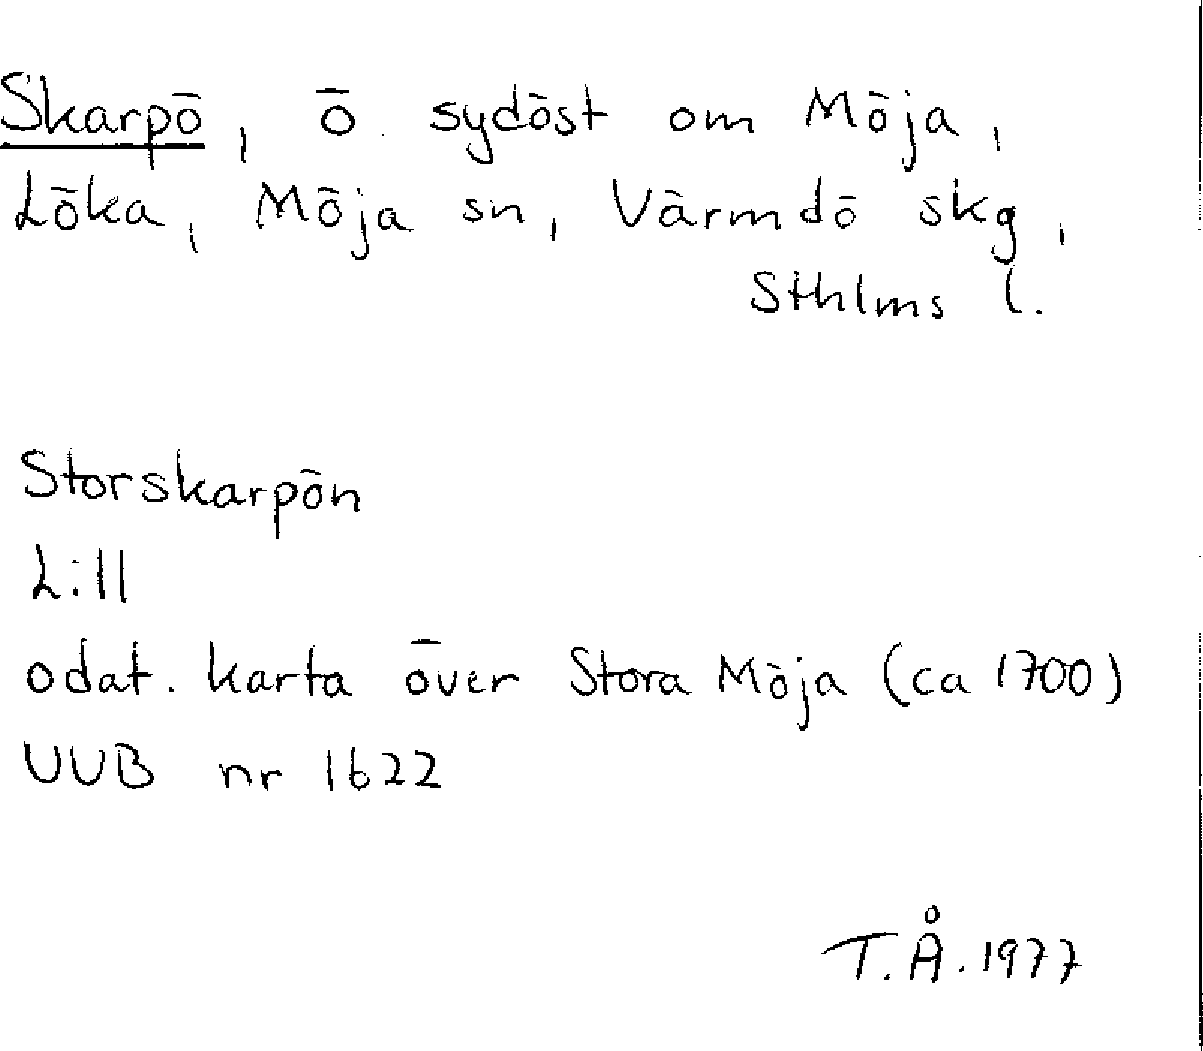 Skarpö, ö sydöst om Möja,
Löka, Möja sn, Värmdö skg,
Sthlms l.
Storskarpön
L:ll
odat. karta över Stora Möja (ca 1700)
UUB nr 1622
T.Å. 1977